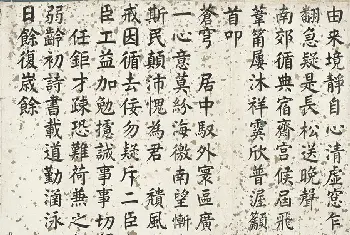 由来境静自心清虚窓乍
翻急疑是長松送晚聲
南郊循典宿齋宮候屆飛
葦筩屢沐祥霙欣普渥籲
首叩
蒼穹 居中馭外寰區廣
一心意莫紛海徼南望慚
斯民顛沛愧為君 積風
戒因循去佞勿疑斥二臣
臣工益加勉攄誠事事切
任鉅才疎恐難荷之
弱齡初詩書載道勤涵泳
日餘復歲餘